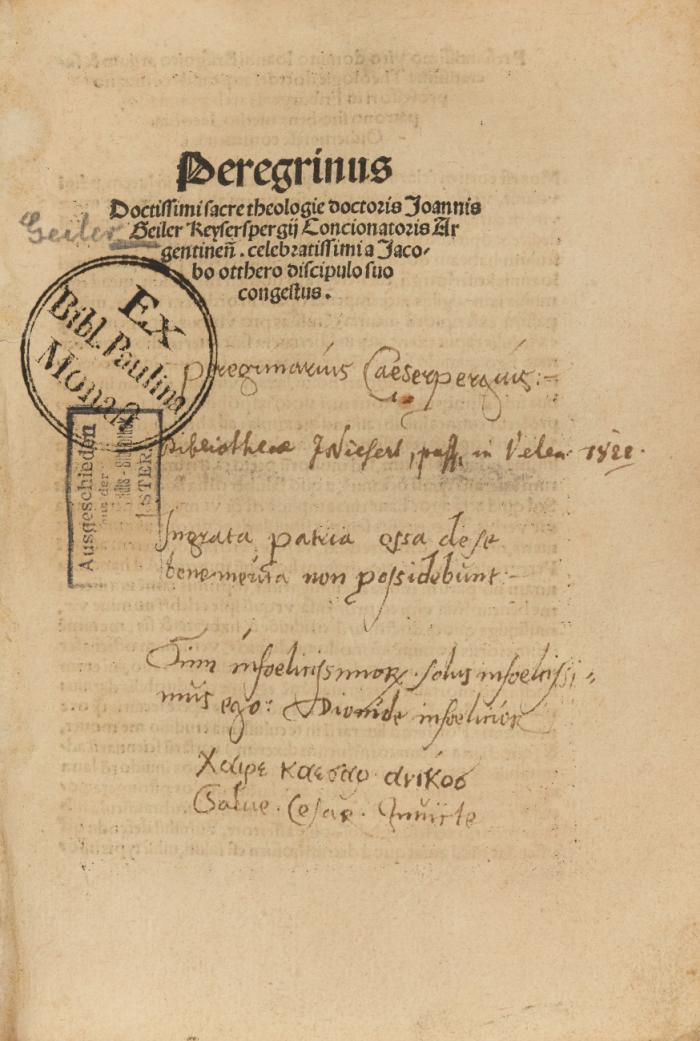 Peregrinus
Doctissimi sacre theologie doctoris Joannis
Geiler Keyserspergij Concionatoris Ar
gentineñ. celebratissimi a Jaco-
bo otthero discipulo suo
congestus.
Geiler
Ex
Bibl. Paulina
Monast
peregrinarius Caeserpergius:-
Bibliothecae JNiesert, past, in Velen 1822.
Ausgeschieden
aus der
STER
Ingrata patria ossa de se
benemerita non possidebunt
Sum infoelicissimorꝝ solus infoelicissi-
mus ego: Diomide infoelicior
Χαιρε καεσαρ ανικοσ
Salue. Cesar. Inuicte